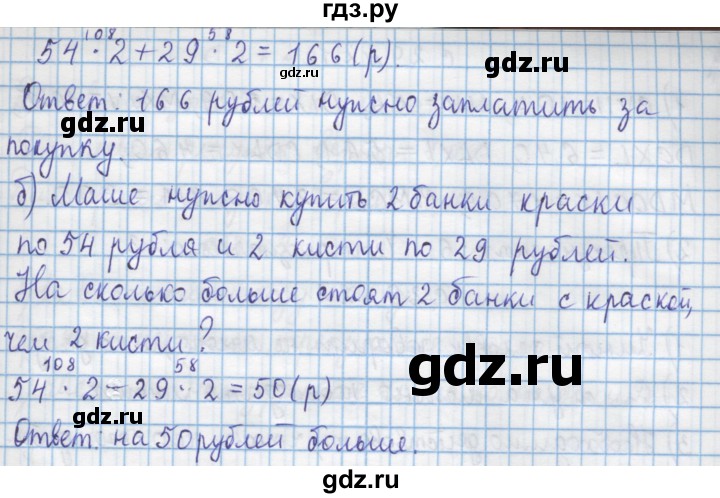 гдз.ру
108 58
54 · 2 + 29 · 2 = 166 (р).
gdz.ru
gdz.ru
Ответ: 166 рублей нужно заплатить за
gdz.ru
покупку.
gdz.ru
б) Маше нужно купить 2 банки краски
по 54 рубля и 2 кисти по 29 рублей.
gdz.ru
gdz.ru
На сколько больше стоят 2 банки с краской,
чем 2 кисти?
gdz.ru
108 58
54 · 2 - 29 · 2 = 50 (р)
gdz.ru
gdz.ru
Ответ: на 50 рублей больше.
gdz.ru
гдз.ру